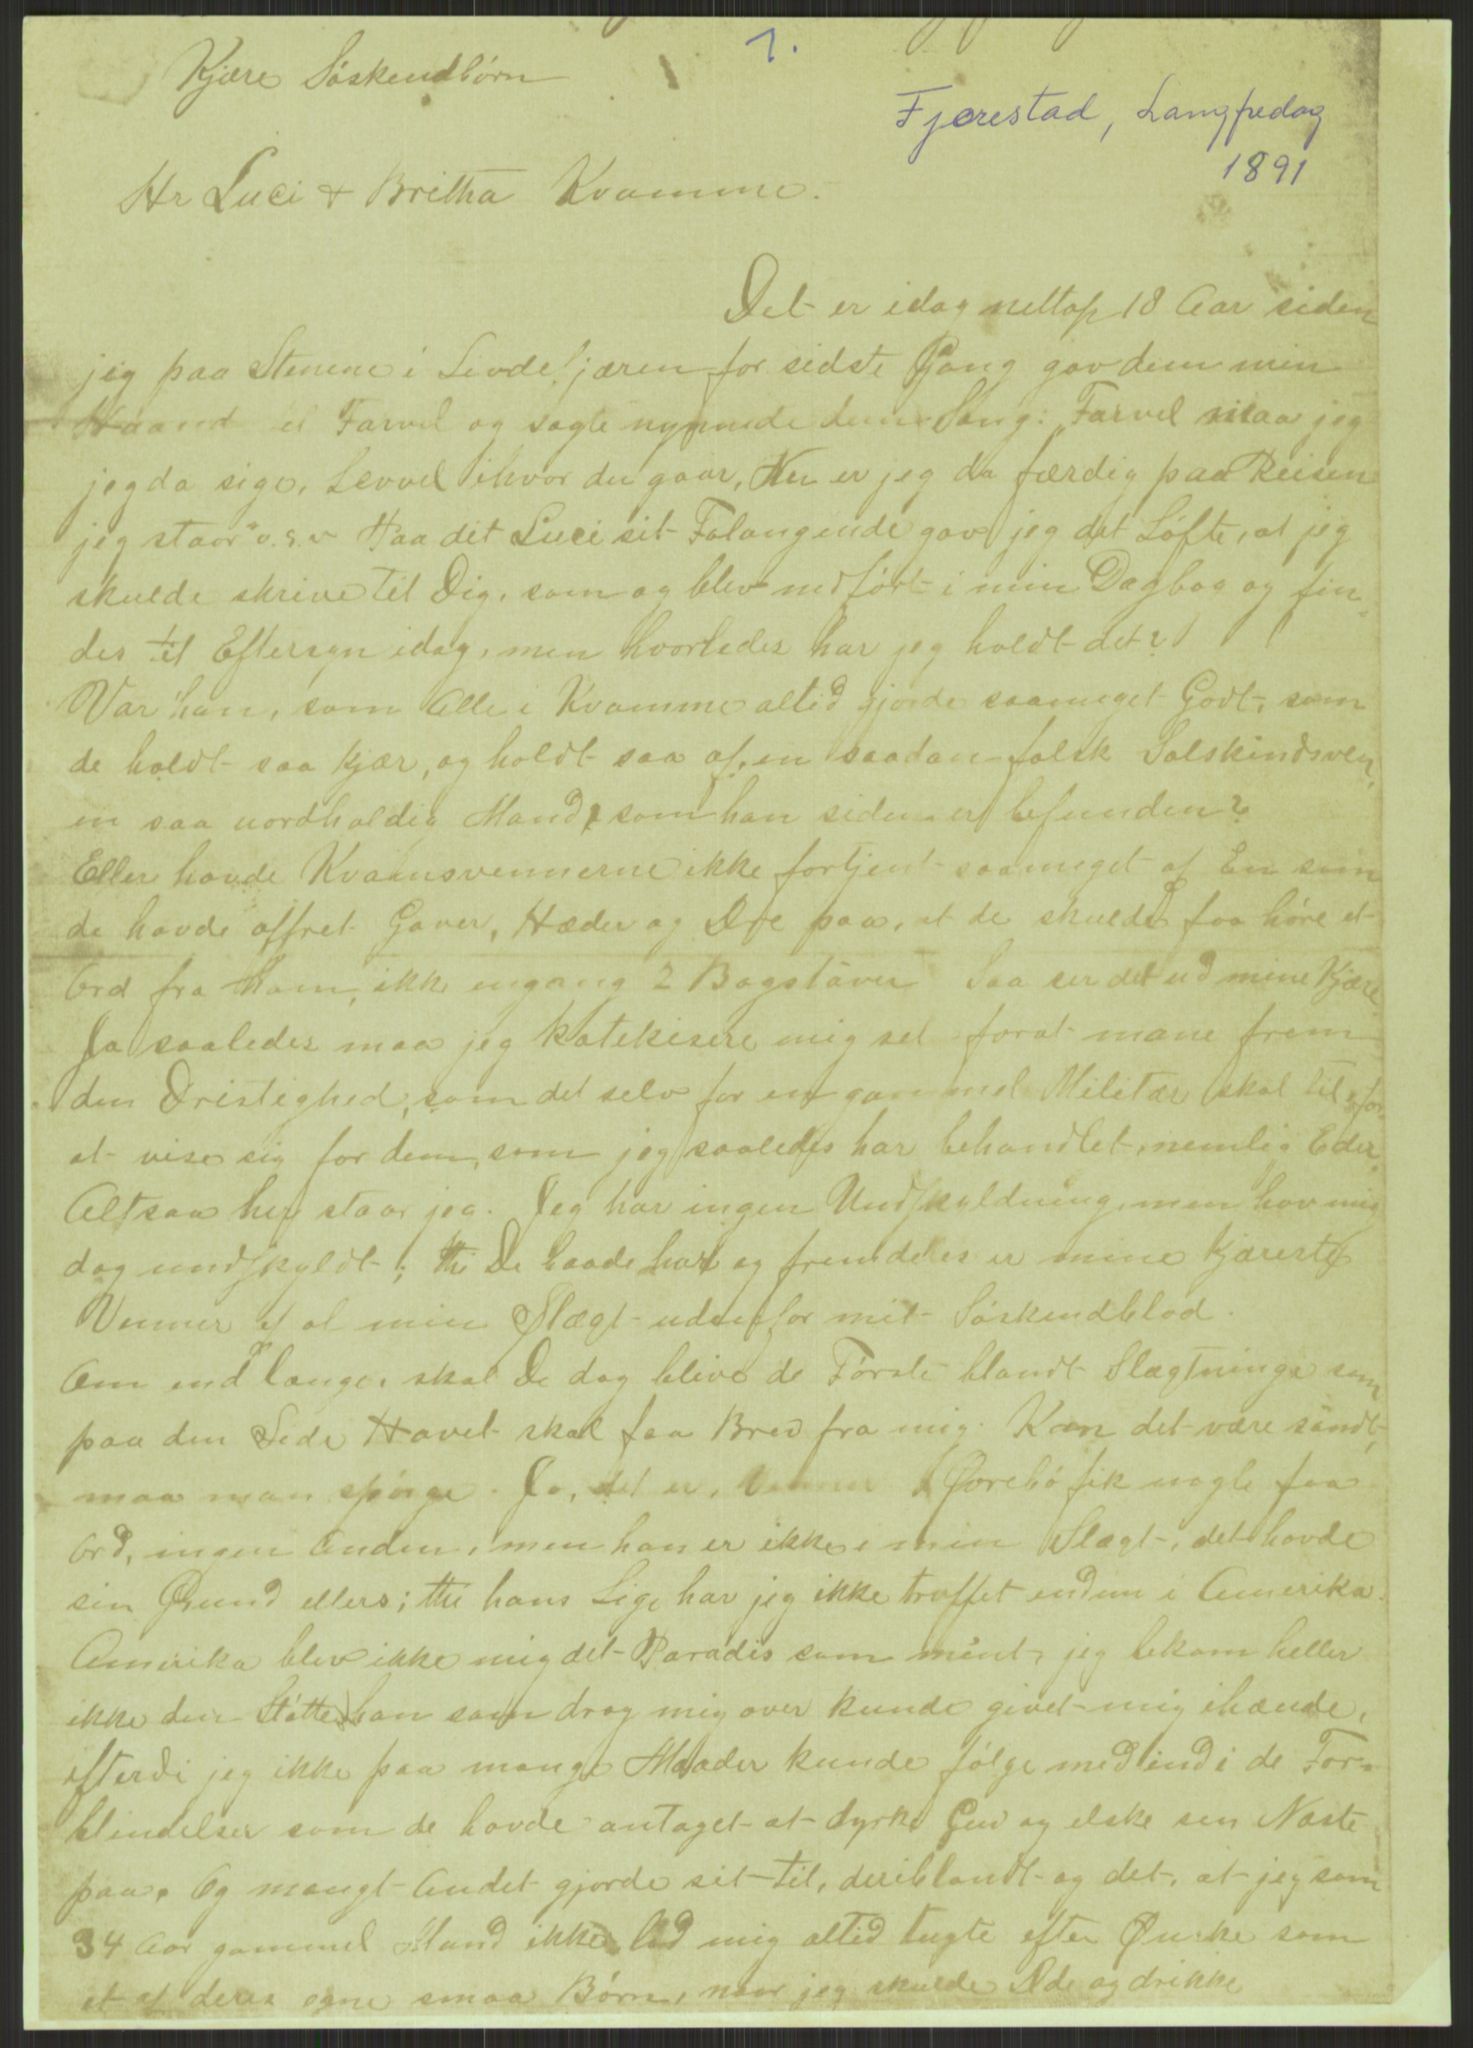 1.
Kjære Søskendbørn
Fjærestad, Langfredag
1891
Hr Luci & Britha Kvamme.
Det er idag nettop 18 Aar siden
jeg paa Stenene i for sidste Gang gav dem min
Haand til Farvel og sagte nynnede den Sang: "Farvel maa jeg
jeg da sige, Levvel ihvor du gaar, Nu er jeg da færdig paa Reisen
jeg staar" o.s.v. Paa det Luci sit Forlangende gav jeg det Løfte, at jeg
skulde skrive til Dig, som og blev indført i min Dagbog og fin-
des til Eftersyn idag, men hvorledes har jeg holdt det?
Var han, som Alle i Kvamme altid gjorde saameget Godt, som
de holdt saa kjær, og holdt saa af, en saadan falsk Solskindsven,
en saa uordholdig Mand, som han siden er befunden?
Eller havde Kvamsvennerne ikke fortjent saameget af En som
de havde offret Gaver, Hæder og Ære paa, at de skulde faa høre et
Ord fra ham, ikke engang 2 Bogstaver Saa ser det ud mine Kjære
Ja saaledes maa jeg katekisere mig sel forat mane frem
den Dristighed, som det selv for en gammel Militær skal til, for
at vise sig for dem, som jeg saaledes har behandlet, nemlig Eder.
Altsaa her staar jeg. Jeg har ingen Undskyldning, men hav mig
dog undskyldt; thi De baade har og fremdeles er mine kjæreste
Venner af al min Slægt udenfor mit Søskendblod.
Om end længe, skal De dog blive de Første blandt Slægtninge som
paa den Side Havet skal faa Brev fra mig. Kan det være sandt,
maa man spørge. Ja, det er, Venner fik nogle faa
Ord, ingen Anden, men han er ikke i min Slægt, det havde
sin Grund ellers; thi hans Lige har jeg ikke truffet endnu i Amerika.
Amerika blev ikke mig det Paradis som ment, jeg bekom heller
ikke den Støtte, han som drog mig over kunde givet mig ihænde,
efterdi jeg ikke paa mange Maader kunde følge med ind i de For-
blindelser som de havde antaget at dyrke Gud og elske sin Næste
paa. Og mangt Andet gjorde sit til, deriblandt og det, at jeg som
34 Aar gammel Mand ikke lod mig altid tugte efter Ønske som
et af deres egne smaa Børn, naar jeg skulde Æde og drikke